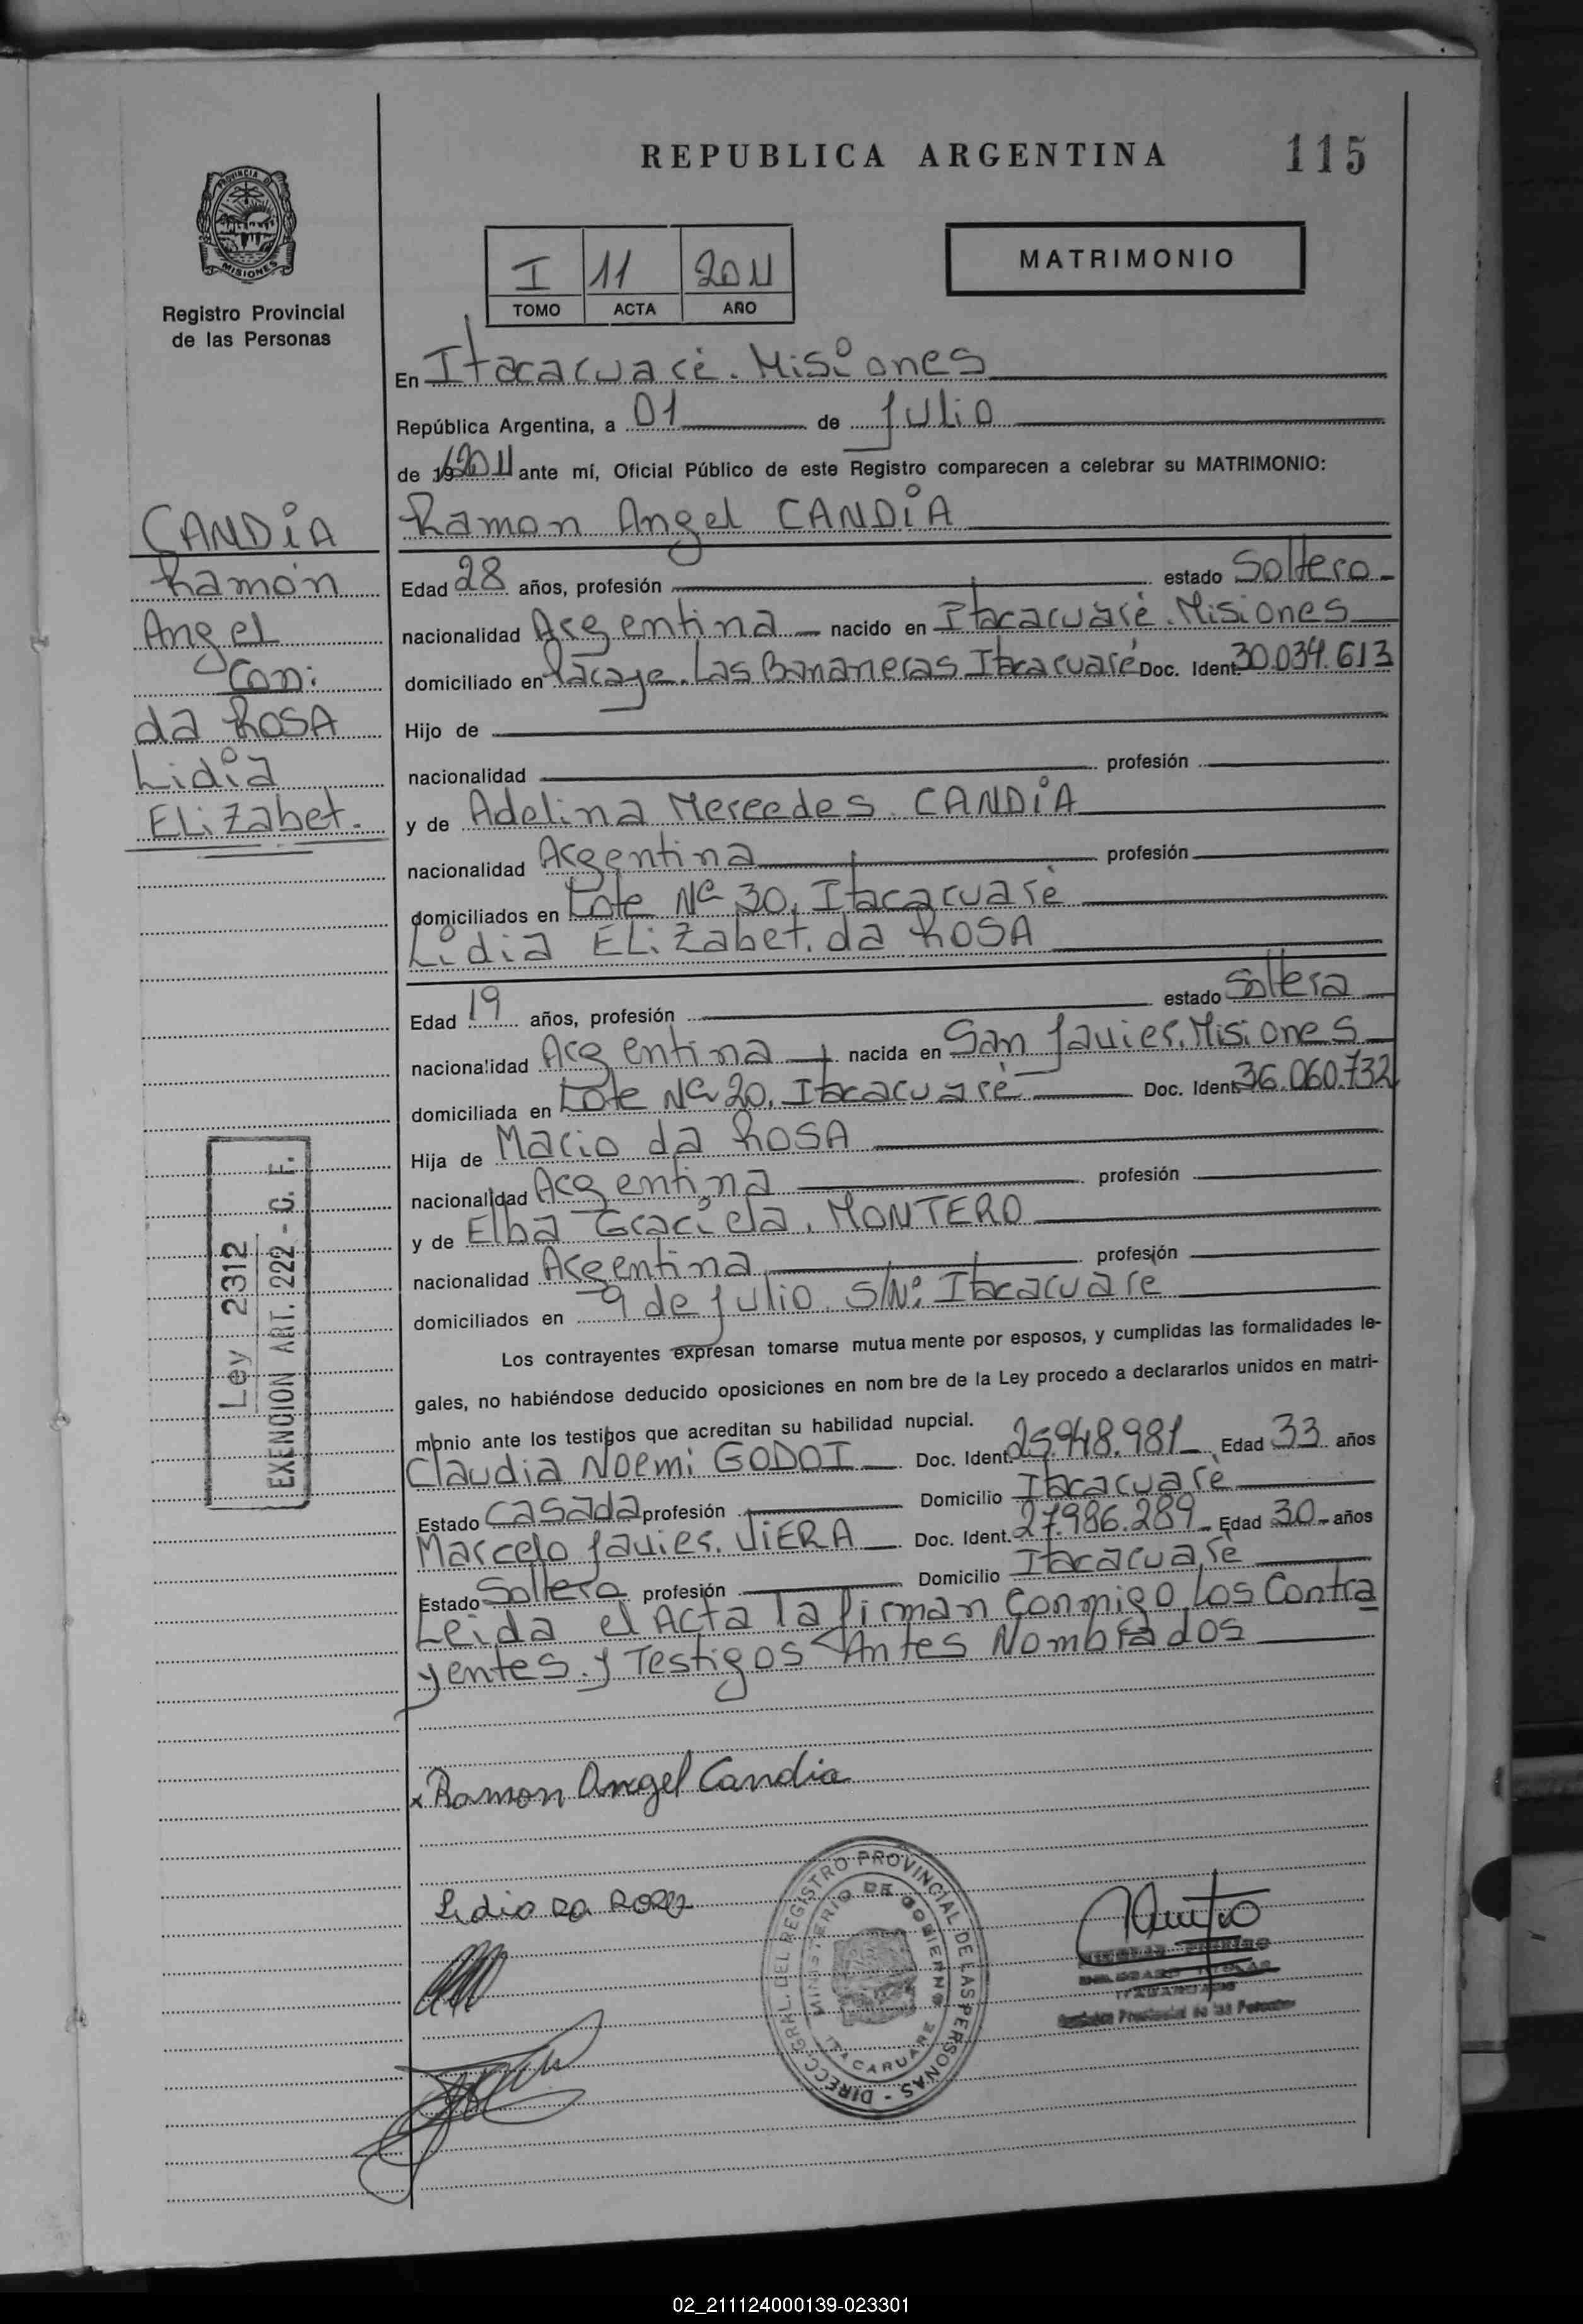 REPUBLICA ARGENTINA
115
PROVINCIA DE
MISIONES
Registro Provincial
de las Personas
I 11 2011
TOMO ACTA AÑO
MATRIMONIO
En Itacaruaré. Misiones
República Argentina, a 01 de Julio
de 19 2011 ante mí, Oficial Público de este Registro comparecen a celebrar su MATRIMONIO:
Ramon Angel CANDiA
CANDiA
Ramón
Angel
Con:
da ROSA
Lidia
ELizabet.
Edad 28 años, profesión estado Soltero
nacionalidad Argentina nacido en Itacaruaré. Misiones
domiciliado en Paraje. Las Bananeras Itacaruaré Doc. Ident. 30.034.613
Hijo de
nacionalidad profesión
y de Adelina Mercedes. CANDiA
nacionalidad Argentina profesión
domiciliados en Lote Nº 30, Itacaruaré
Lidia ELizabet. da ROSA
Edad 19 años, profesión estado Soltera
nacionalidad Argentina nacida en San Javier. Misiones
domiciliada en Lote Nº 20, Itacaruaré Doc. Ident. 36.060.732
Hija de Mario da ROSA
nacionalidad Argentina profesión
y de Elba Graciela. MONTERO
nacionalidad Argentina profesión
domiciliados en 9 de julio. S/Nº Itacaruare
Ley 2312
EXENCION ART. 222 - C. F.
Los contrayentes expresan tomarse mutua mente por esposos, y cumplidas las formalidades le-
gales, no habiéndose deducido oposiciones en nom bre de la Ley procedo a declararlos unidos en matri-
monio ante los testigos que acreditan su habilidad nupcial.
Claudia Noemi GODOI Doc. Ident. 25.948.981 Edad 33 años
Estado Casada profesión Domicilio Itacaruaré
Marcelo Javier. ViERA Doc. Ident. 27.986.289 Edad 30 años
Estado Soltero profesión Domicilio Itacaruaré
Leida el Acta la firman Conmigo Los Contra
yentes y Testigos Antes Nombrados
x Ramon Angel Candia
Lidia da Rosa
DIRECC. GRAL. DEL REGISTRO PROVINCIAL DE LAS PERSONAS -
MINISTERIO DE GOBIERNO
ITACARUARE
Registro Provincial de las Personas
02_211124000139-023301